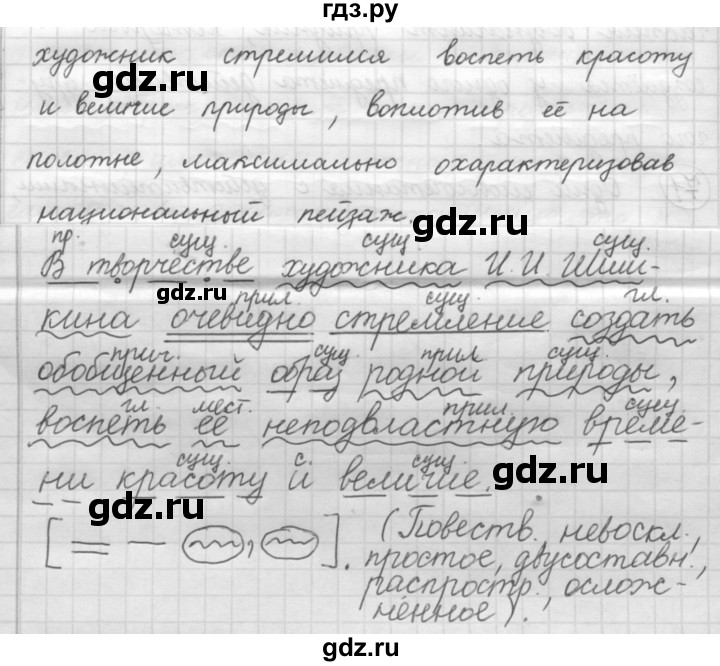 гдз.ру
художник стремился воспеть красоту
и величие природы, воплотив её на
полотне, максимально охарактеризовав
национальный пейзаж.
пр. сущ. сущ. сущ.
В творчестве художника И.И. Шиш-
прил. сущ. гл.
кина очевидно стремление создать
прич. сущ. прил сущ.
обобщенный образ родной природы,
гл. мест. прил. сущ.
воспеть её неподвластную време-
сущ. с. сущ.
ни красоту и величие.
(Повеств., невоскл.,
простое, двусоставн.,
распростр., ослож-
нённое).
gdz.ru
gdz.ru
gdz.ru
gdz.ru
gdz.ru
gdz.ru
gdz.ru